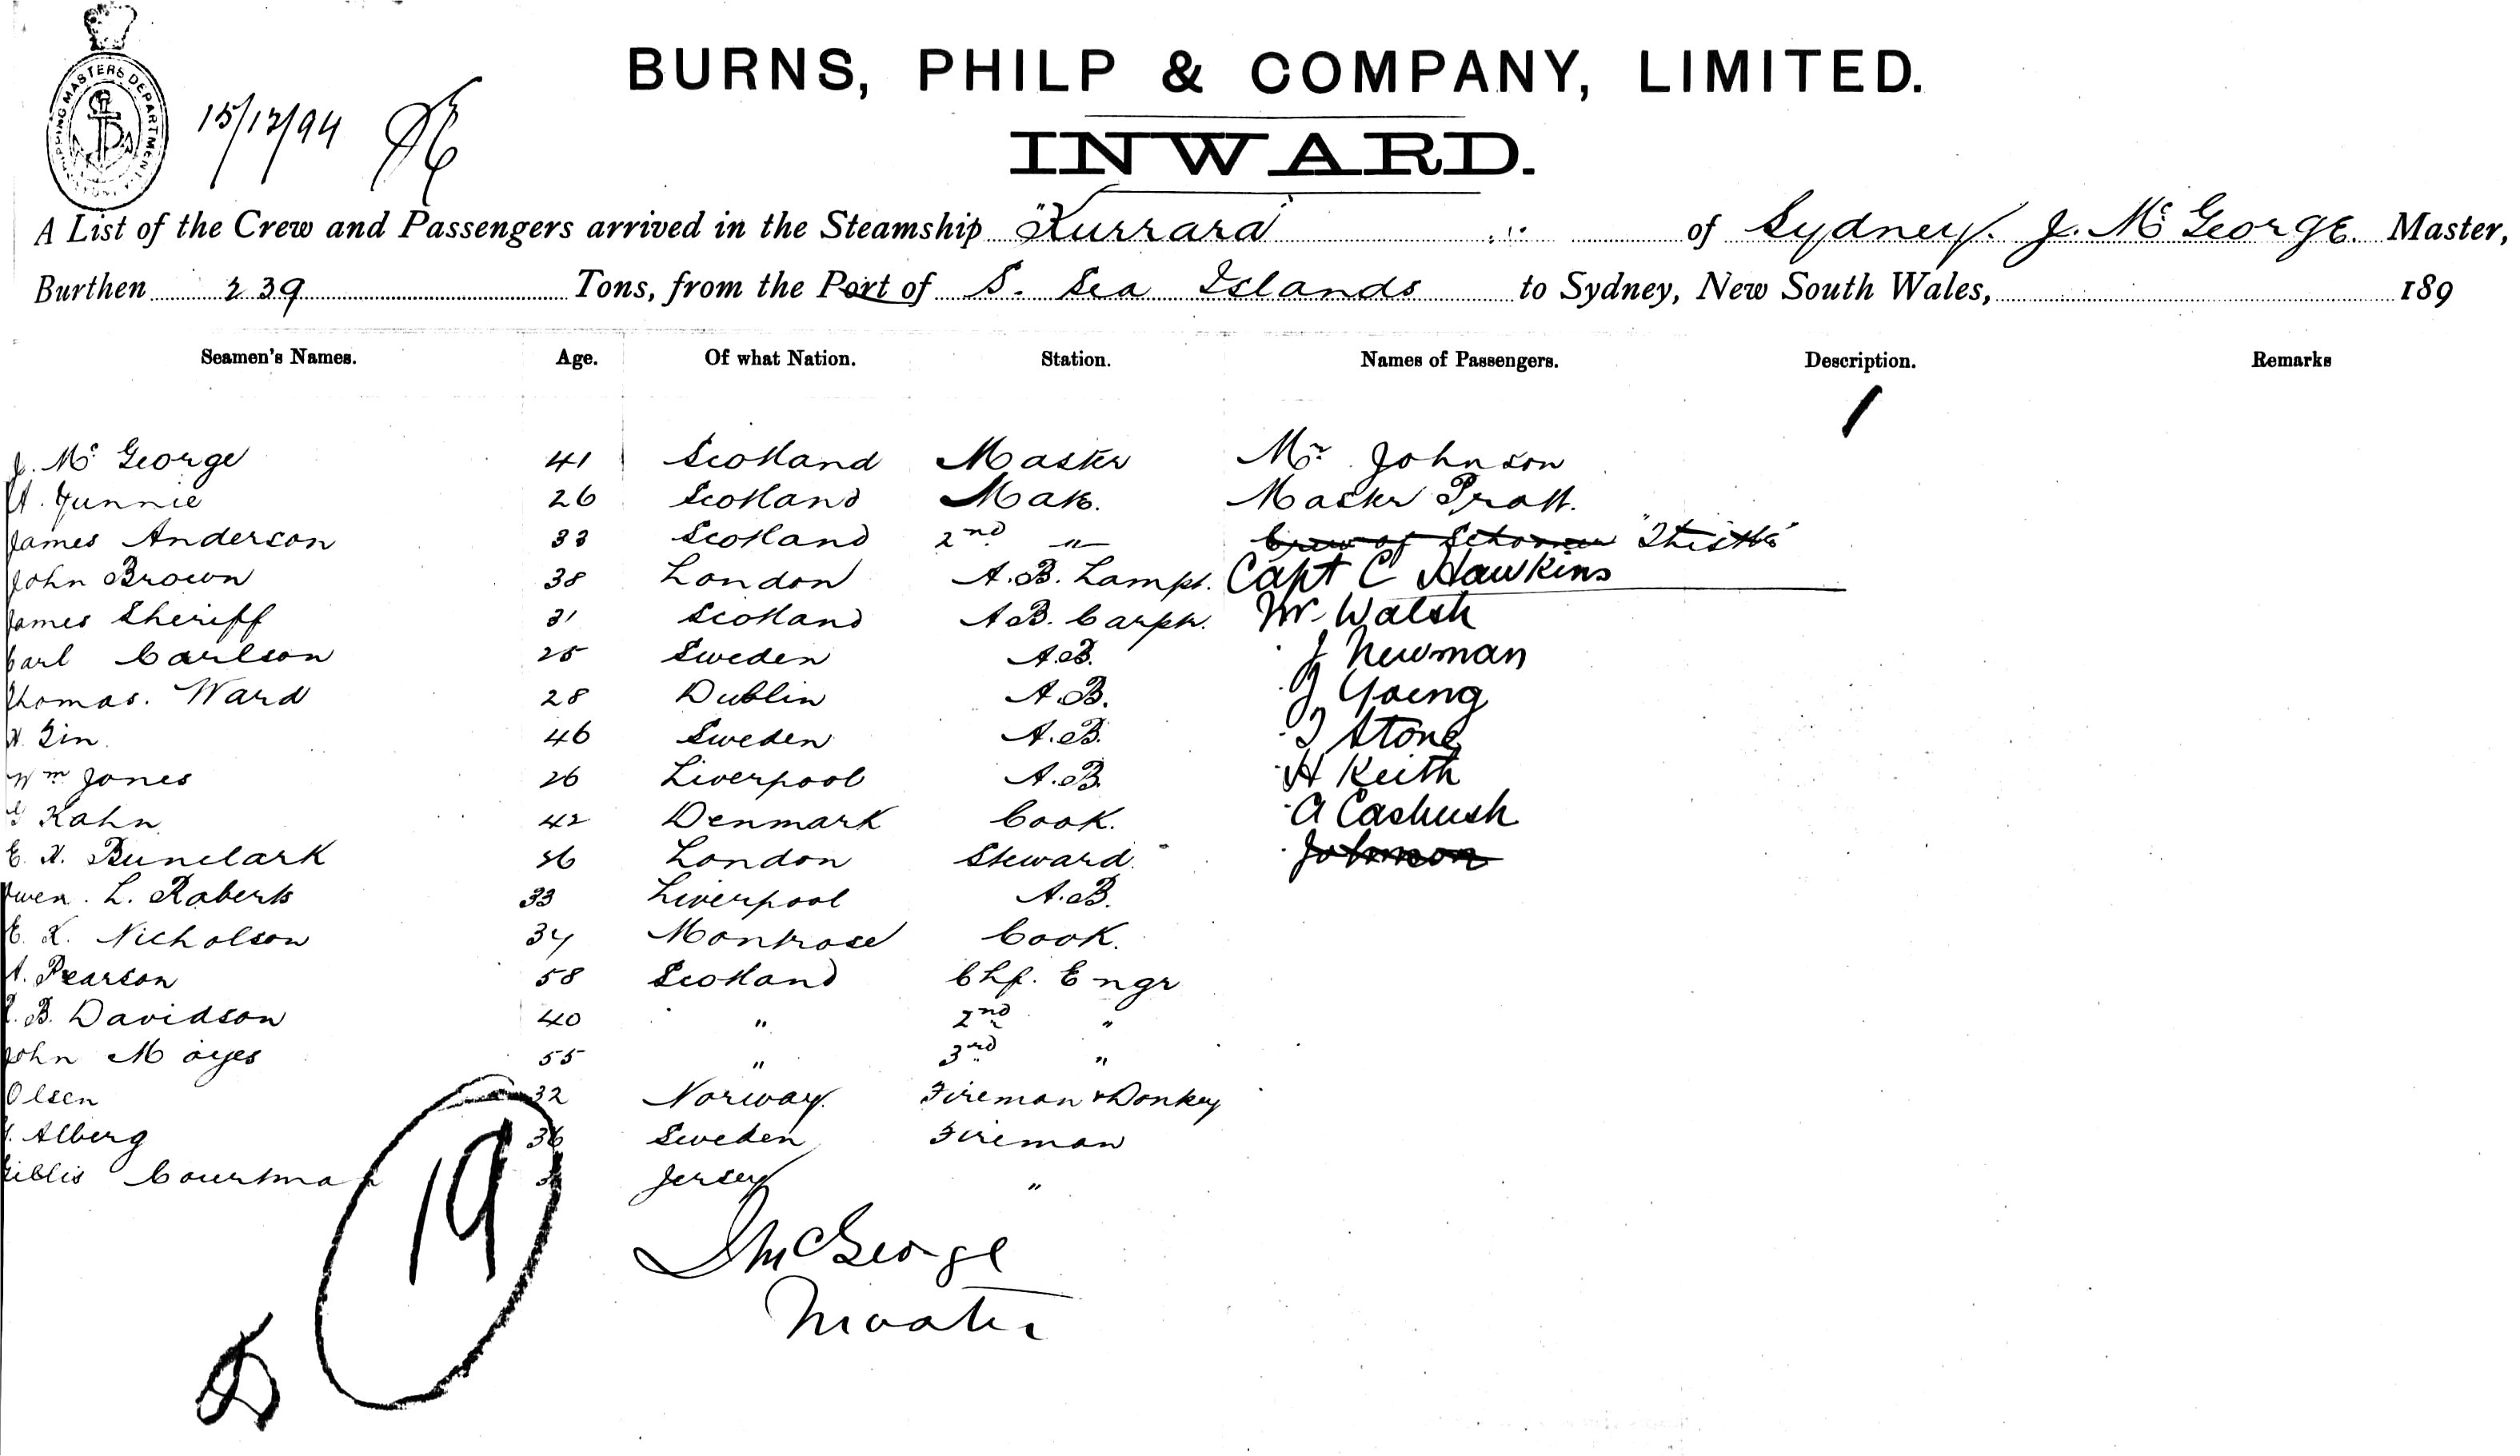 BURNS, PHILP & COMPANY, LIMITED.
SHIPPING MASTERS DEPARTMENT
15/12/94
INWARD.
A List of the Crew and Passengers arrived in the Steamship "Kurrara" of Sydney. J. Mc George. Master,
Burthen 239 Tons, from the Port of S. Sea Islands to Sydney, New South Wales, 189
Seamen's Names. Age. Of what Nation. Station. Names of Passengers. Description. Remarks
J. Mc George 41 Scotland Master Mr Johnson
26 Scotland Mate. Master Pratt.
James Anderson 33 Scotland 2nd " Crew of Schooner "Thistle"
John Brown 38 London A.B. Lampt. Capt C Hawkins
James Sheriff 31 Scotland A.B. Carptr. Mr Walsh
Carl Carlson 25 Sweden A.B. J Newman
Thomas. Ward 28 Dublin A.B. J Young
Gin. 46 Sweden A.B. Stone
Wm Jones 26 Liverpool A.B. H Keith
Kahn 42 Denmark Cook. A Cashush
E. H. Bunclark 26 London Steward. Johnson
Owen. L. Roberts 33 Liverpool A.B.
E. K. Nicholson 34 Montrose Cook.
A. Pearson 58 Scotland Chf. Engr
B. Davidson 40 " 2nd "
John Moyes 55 " 3rd "
Olsen 32 Norway. Fireman & Donkey
Alberg 36 Sweden Fireman
Courtman Jersey "
19
J McGeorge
Master